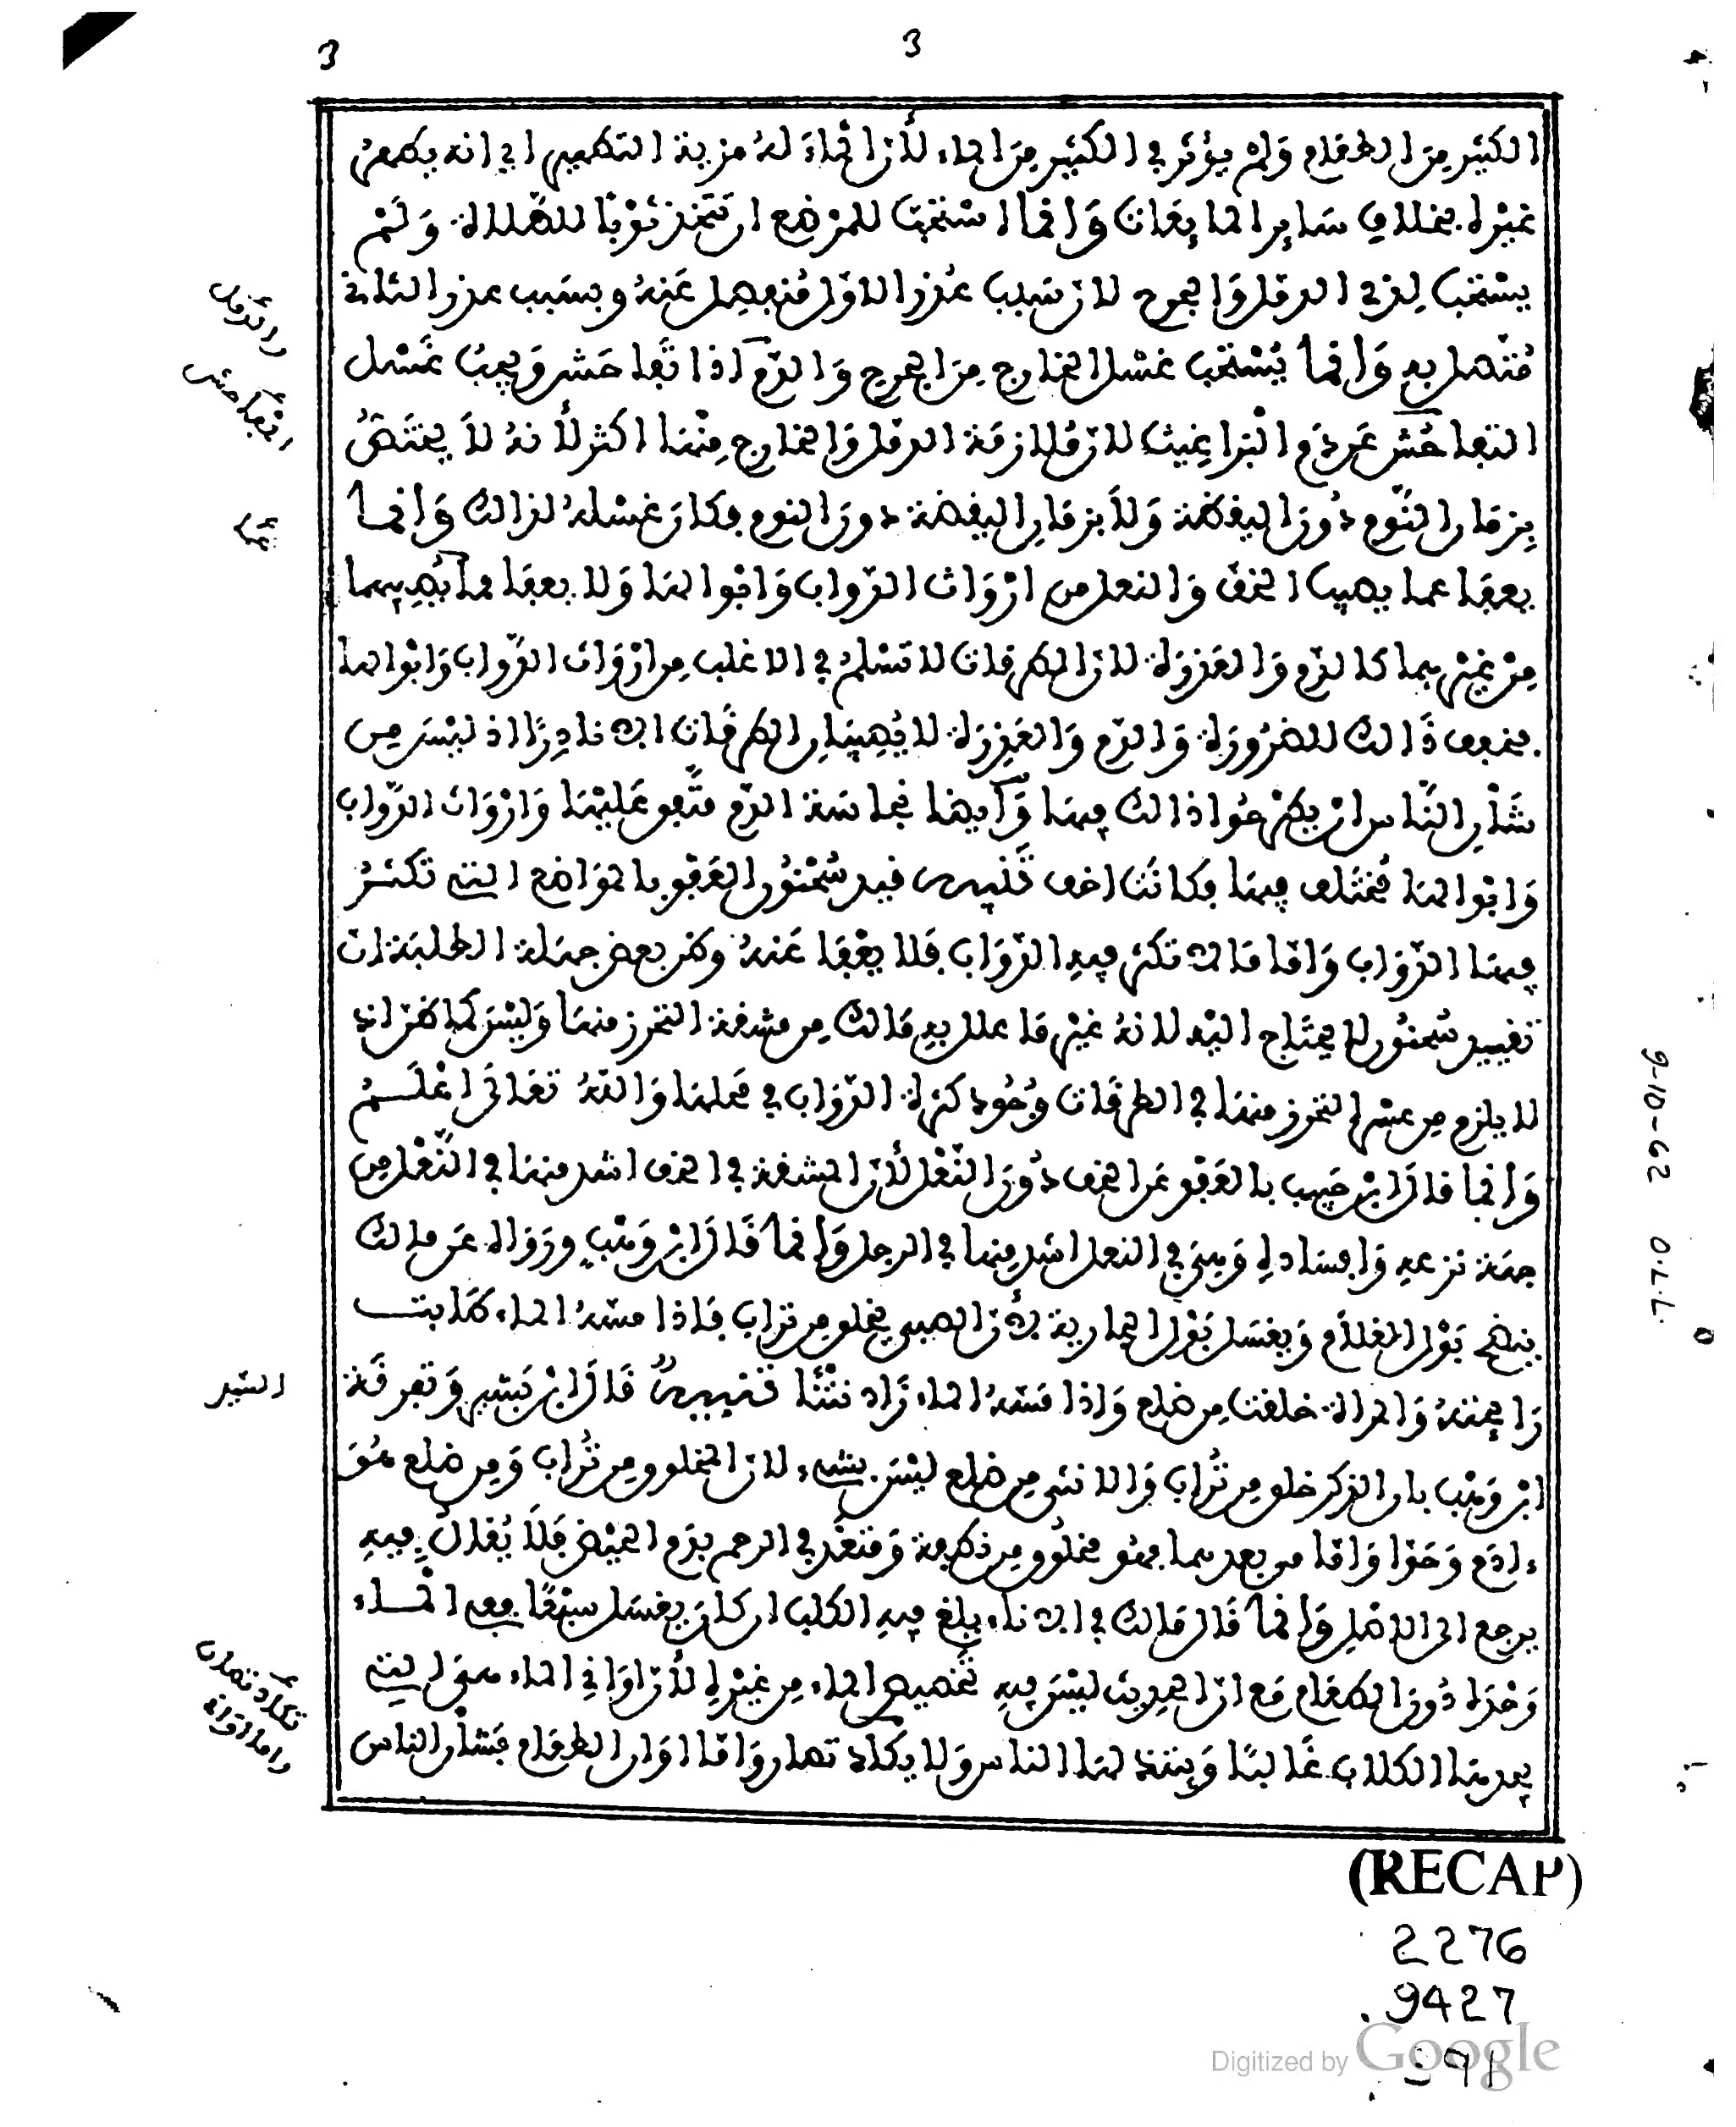 3
3
الكثير من الطعام ولم يؤثر في الكثير من الماء لأن الماء له مزية التطهير اي انه يطهر
غيره بخلاف ساير المايعات وإنما استحب للمرضع ان تتخذ ثوبا للصلاة ولم
يستحب لذي الدمل والجرح لان سبب عذر الاول منفصل عنه وبسبب عذر الثاني
متصل به وإنما يستحب غسل الخارج من الجرح والدم اذا تفاحش ويجب غسل
المتفاحش من دم البراغيث لان ملازمة الدمل والخارج منها اكثر لأنه لا يختص
بزمان النوم دون اليقظة ولا بزمان اليقظة دون النوم فكان غسله لذالك وإنما
يعفا عما يصيب الخف والنعل من ارواث الدواب وابوالها ولا يعفا عما يصيبهما
من غيرهما كالدم والعذرة لان الطرقات لا تسلم في الاغلب من ارواث الدواب وابوالها
فخفف ذالك للضرورة والدم والعذرة لا يصيبان الطرقات الا نادرا اذ ليس من
شأن الناس ان يطرحوا ذالك فيها وأيضا نجاسة الدم متفق عليها وارواث الدواب
وابوالها مختلف فيها فكانت اخف تنبيه قيد سحنون العفو بالمواضع التي تكثر
فيها الدواب واما ما لا تكثر فيه الدواب فلا يعفا عنه وظن بعض جهلة الطلبة ان
تقييد سحنون لا يحتاج اليه لانه غير ما علل به مالك من مشقة التحرز منها وليس كما ظن اذ
لا يلزم من عسر التحرز منها في الطرقات وجود كثرة الدواب في محلها والله تعالى أعلم
وإنما قال ابن حبيب بالعفو عن الخف دون النعل لأن المشقة في الخف اشد منها في النعل من
جهة نزعه وافساده وهي في النعل اشد منها في الرجل وإنما قال ابن وهب ورواه عن مالك
ينضح بول الغلام ويغسل بول الجارية لأن الصبي يخلق من تراب فاذا مسه الماء طابت
رايحته والمرأة خلقت من ضلع واذا مسه الماء زاد نتنا تنبيه قال ابن بشير وتفرقة
ابن وهب بان الذكر خلق من تراب والانثى من ضلع ليس بشيء لان المخلوق من تراب ومن ضلع هو
ءادم وحوا واما من بعدهما فهو مخلوق من نطفة ومتغذ في الرحم بدم الحيض فلا يقال فيه
يرجع الى الاصل وإنما قال مالك في الاناء يلغ فيه الكلب ان كان يغسل سبعا ففي الماء
وحده دون الطعام مع ان الحديث ليس فيه تخصيص الماء من غيره لأن اواني الماء هي التي
يجدها الكلاب غالبا ويتخذ لها الناس ولا يكاد تصان واما اوان الطعام فشأن الناس
والدمل
المتفاحش
عن
السير
تكاد تصان
واما اوانه
9-10-62 O.L.L.
(RECAP)
2276
.9427
.591
Digitized by Google